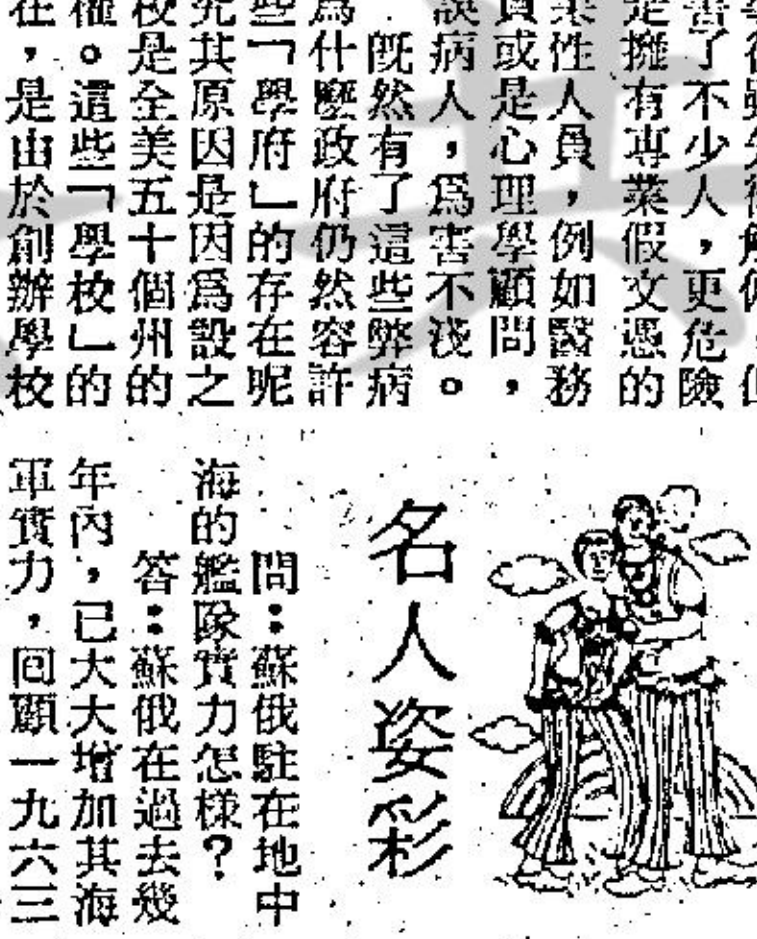 害了不少人，更危險
是擁有專業假文憑的
業性人員，例如醫務
員或是心理學顧問，
誤病人，爲害不淺。
既然有了這些弊病
爲什麼政府仍然容許
些「學府」的存在呢
究其原因是因爲設之
校是全美五十個州的
權。這些「學校」的
在，是由於創辦學校
名人姿彩
問：蘇俄駐在地中
海的艦隊實力怎樣？
答：蘇俄在過去幾
年內，已大大增加其海
軍實力，回顧一九六三